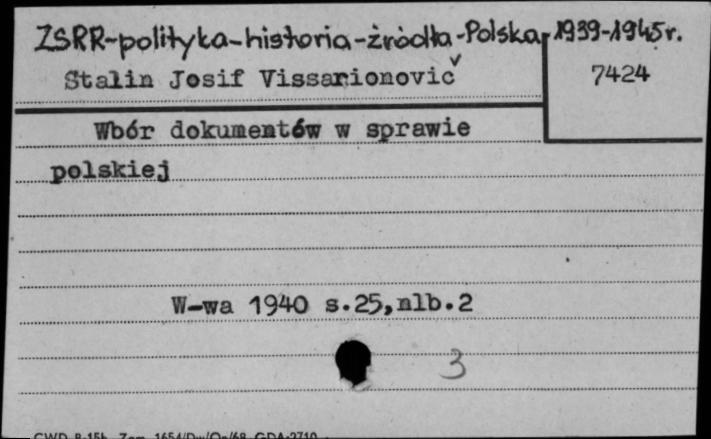 ZSRR-polityka-historia-źródła-Polska, 1939-1945r.
Stalin Josif Vissarionovič
7424
Wbór dokumentów w sprawie
polskiej
W-wa 1940 s.25,nlb.2
3
CWD B-15b Zam. 1654/Dw/Op/68 GDA-2710